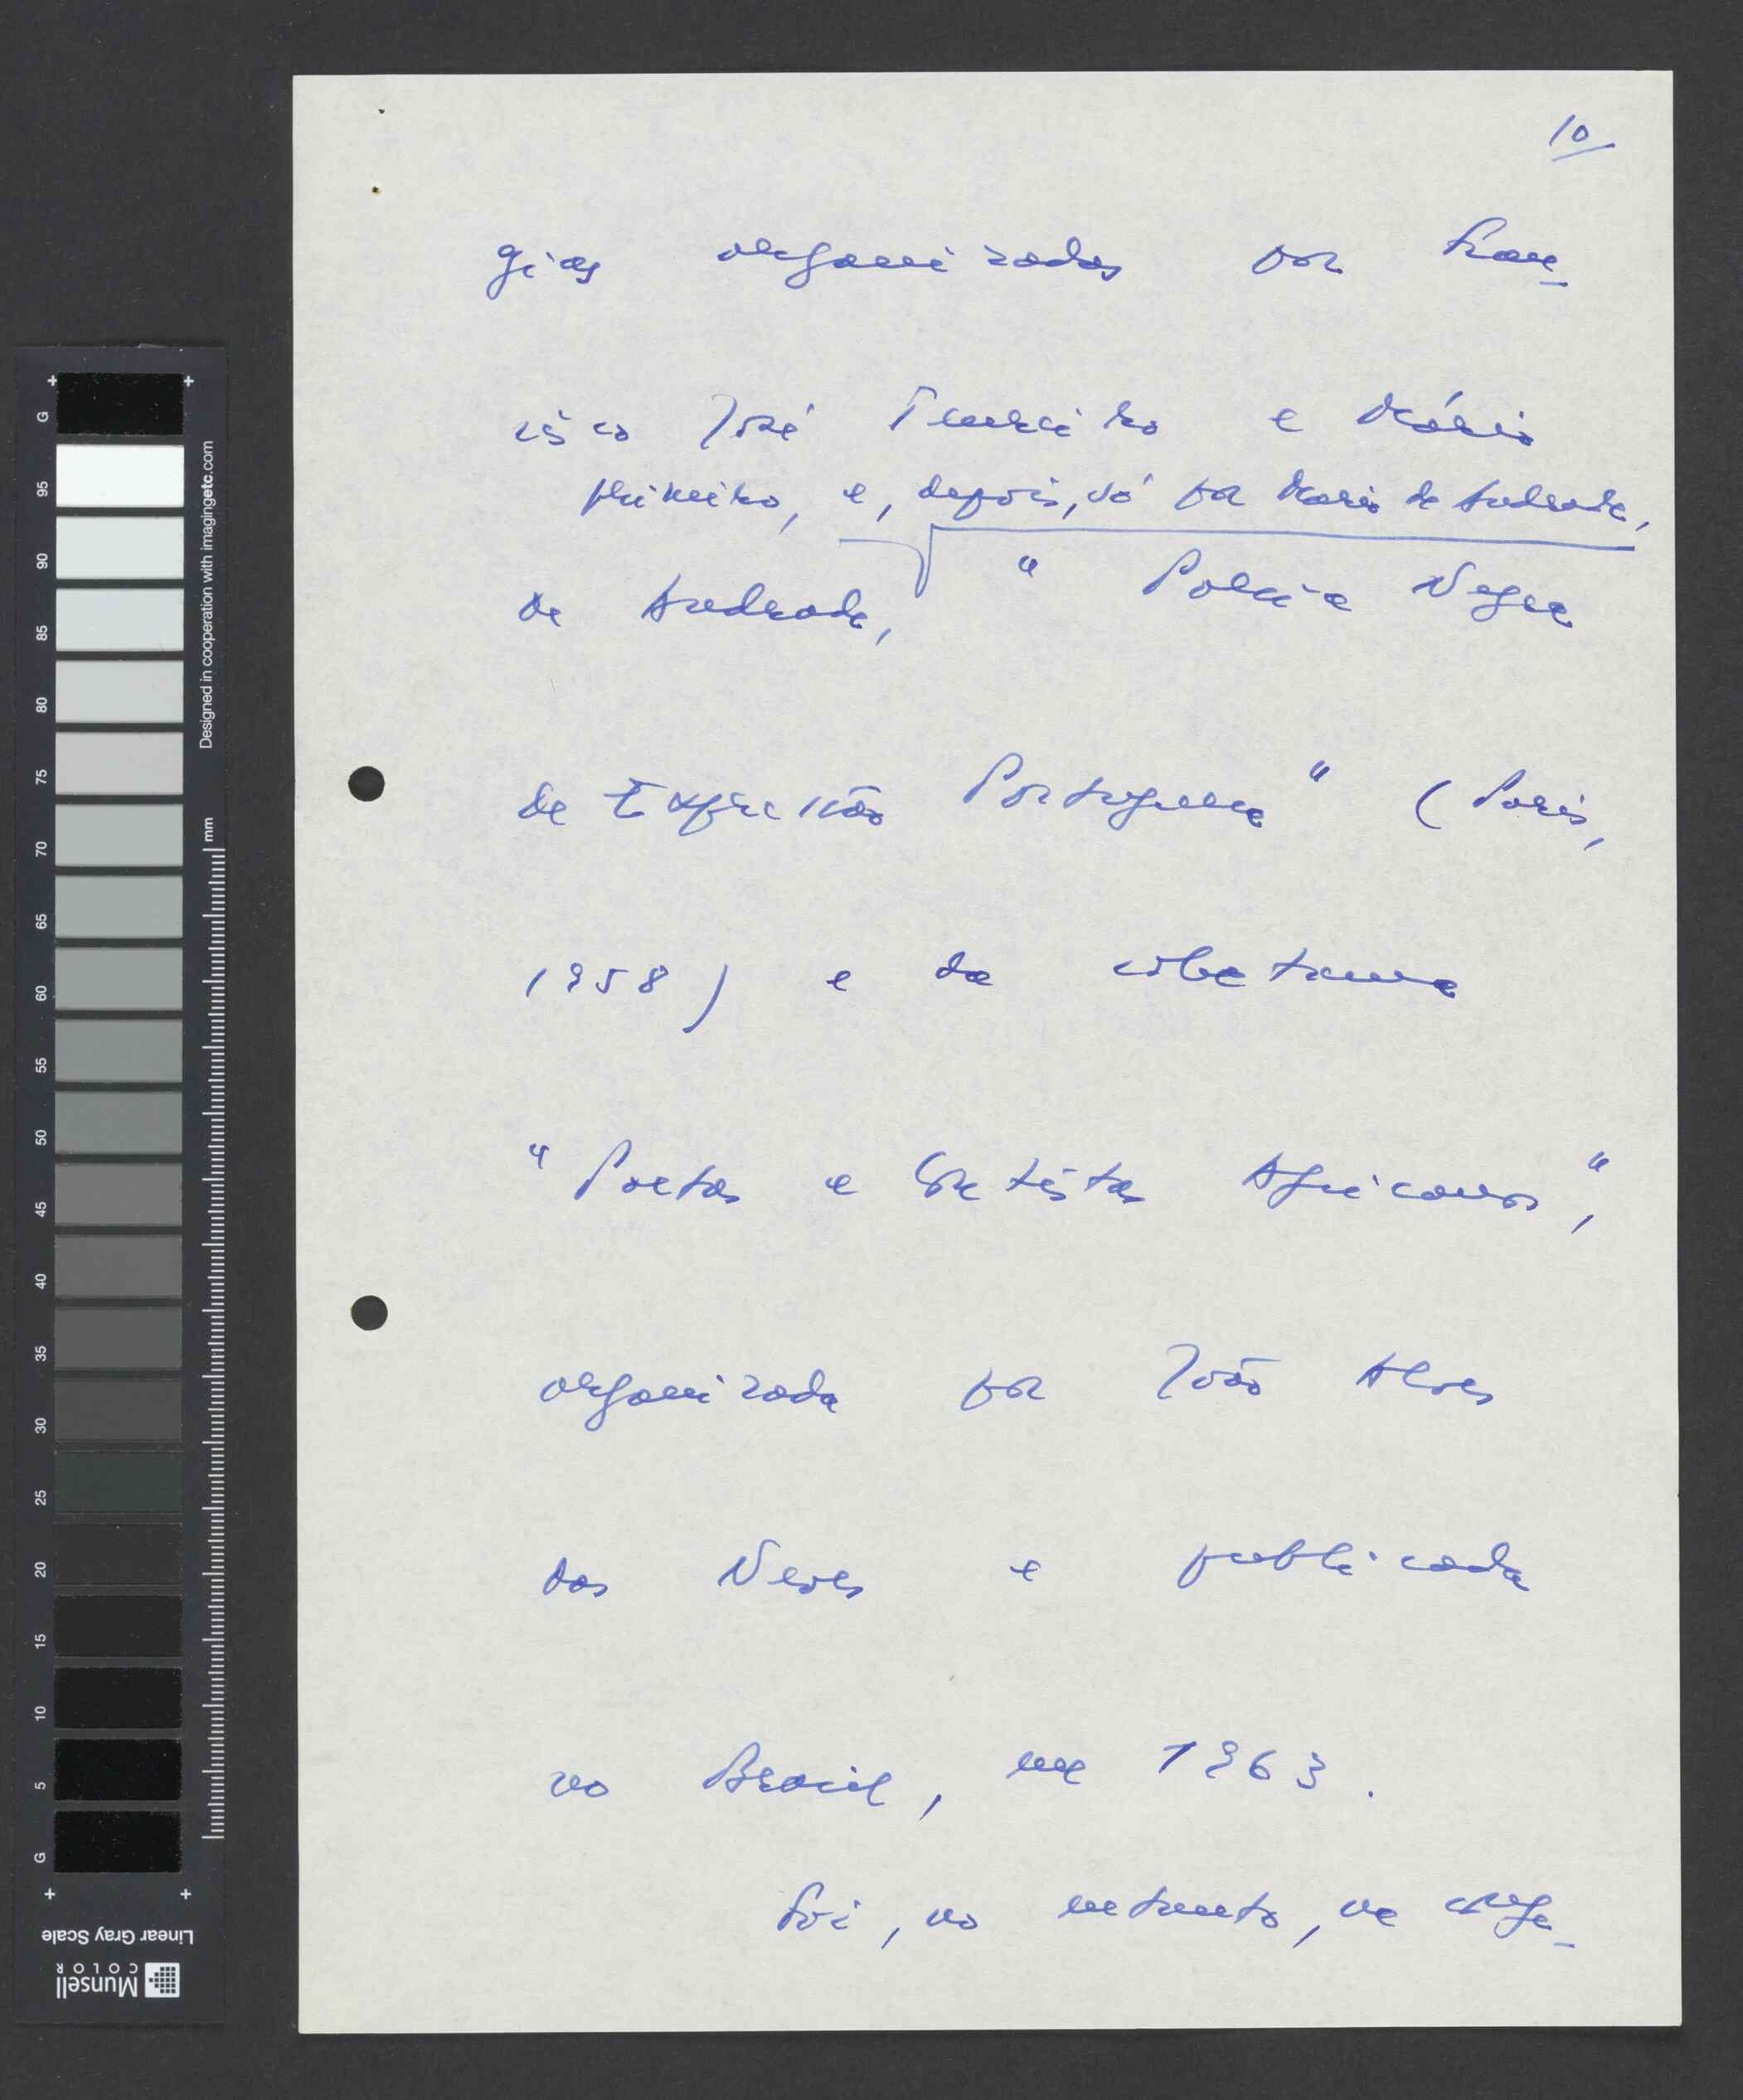 10
gias organizadas por Fran-
cisco José Tenreiro e Mário
primeiro, e, depois, só por Mario de Andrade,
de Andrade, " Poesia Negra
de Expressão Portuguesa" (Paris,
1958) e da coletanea
"Poetas e Contistas Africanos",
organizada por João Alves
das Neves e publicada
no Brasil, em 1963.
Foi, no entanto, na
G 95 90 85 80 75 70 65 60 55 50 45 40 35 30 25 20 15 10 5 G
Designed in cooperation with imagingetc.com
mm
Linear Gray Scale
Munsell
COLOR